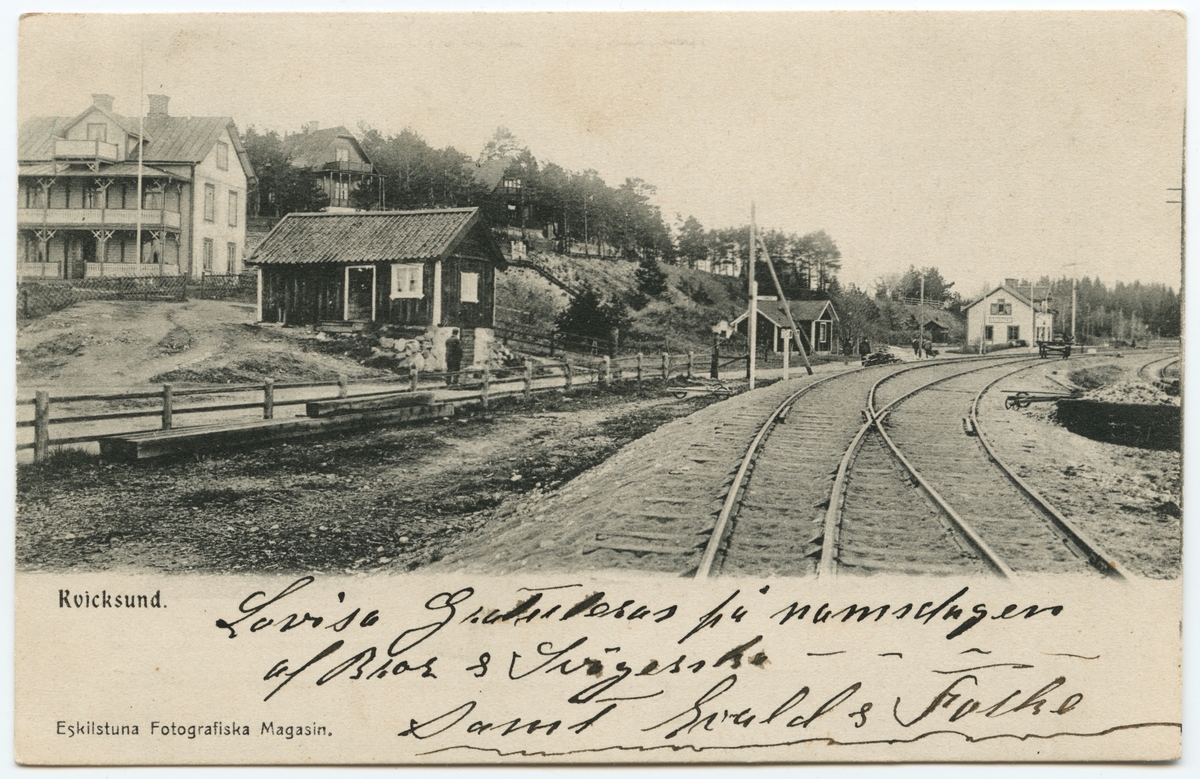 Kvicksund.
Lovisa Gratuleras på namnsdagen
af Bror & Svägerska
samt Evald & Folke
Eskilstuna Fotografiska Magasin.